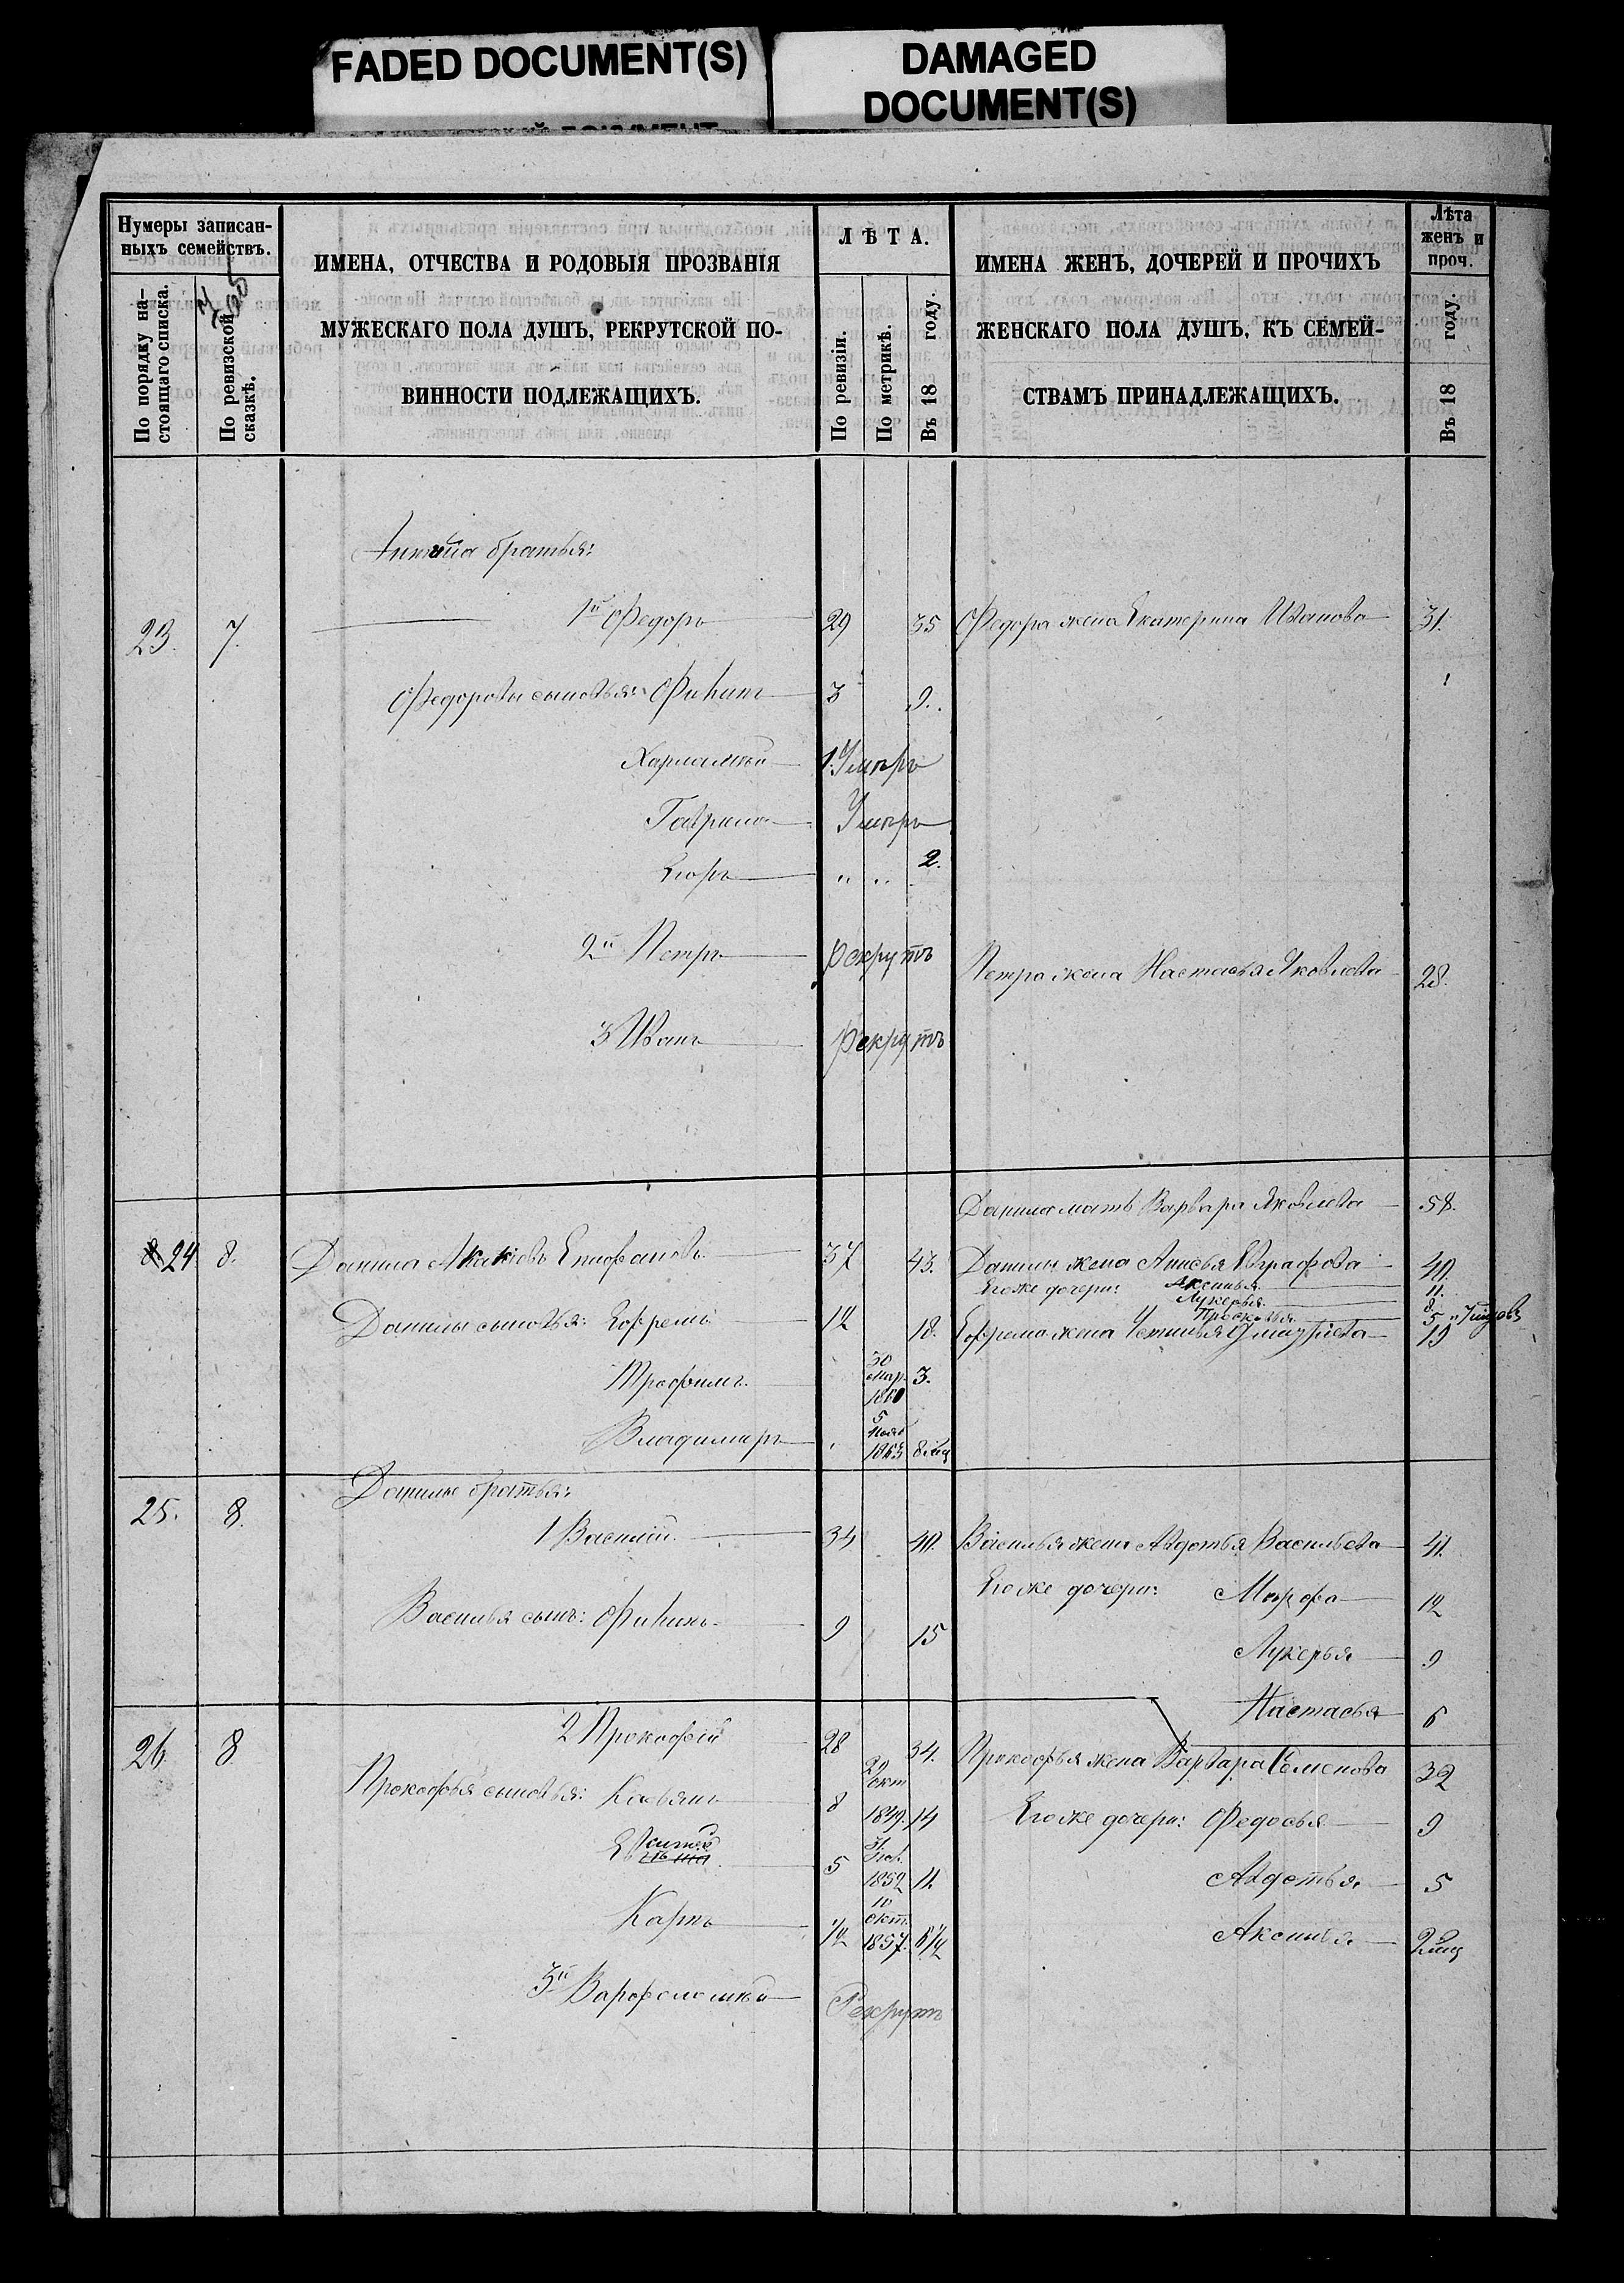 FADED DOCUMENT(S)
DAMAGED
DOCUMENT(S)
Нумеры записан-
ныхъ семействъ.
По порядку на-
стоящаго списка.
По ревизской
сказкѣ.
ИМЕНА, ОТЧЕСТВА И РОДОВЫЯ ПРОЗВАНІЯ
МУЖЕСКАГО ПОЛА ДУШЪ, РЕКРУТСКОЙ ПО-
ВИННОСТИ ПОДЛЕЖАЩИХЪ.
ЛѢТА.
По ревизіи.
По метрикѣ.
Въ 18 году.
ИМЕНА ЖЕНЪ, ДОЧЕРЕЙ И ПРОЧИХЪ
ЖЕНСКАГО ПОЛА ДУШЪ, КЪ СЕМЕЙ-
СТВАМЪ ПРИНАДЛЕЖАЩИХЪ.
Лѣта
женъ и
проч.
Въ 18 году.
братья:
23. 7. 1й Федоръ 29 35 Федора жена Екатерина Иванова 31.
Федоровы сыновья: 3 9.
Харлампій 1. Умеръ
Гаврила Умеръ
Егоръ " " 2.
2й Петръ рекрутъ Петра жена Настасья Яковлева 28.
3 Иванъ рекрутъ
Данила мать Варвара Яковлева 58.
24 8. Данила Акакіевъ Епифановъ 37 43. Данилы жена Анисья Евграфова 40.
Егоже дочери: Аксинья 11.
Лукерья 8.
Просковья 5
Данилы сыновья: Ефремъ 12 18. Ефрема жена 19
Трофимъ 30 Мар. 1860 3.
Владимиръ 5 Нояб 1863 8 мц
Данилы братья:
25. 8. 1 Василій 34 40. Василья жена Авдотья Васильева 41.
Егоже дочери: Марфа 12
Василья сынъ: 9 15
Лукерья 9
Настасья 6
26. 8 2 Прокофій 28 34. Прокофья жена Варвара Семенова 32
Прокофья сыновья: Касьянъ 8 29 окт 1849. 14 Егоже дочери: Федосья 9
5 1852 11. Авдотья 5
Карпъ 1/2 10 окт. 1857. 6 1/2 Аксинья 2 мц
3й Варфоломей Рекрутъ